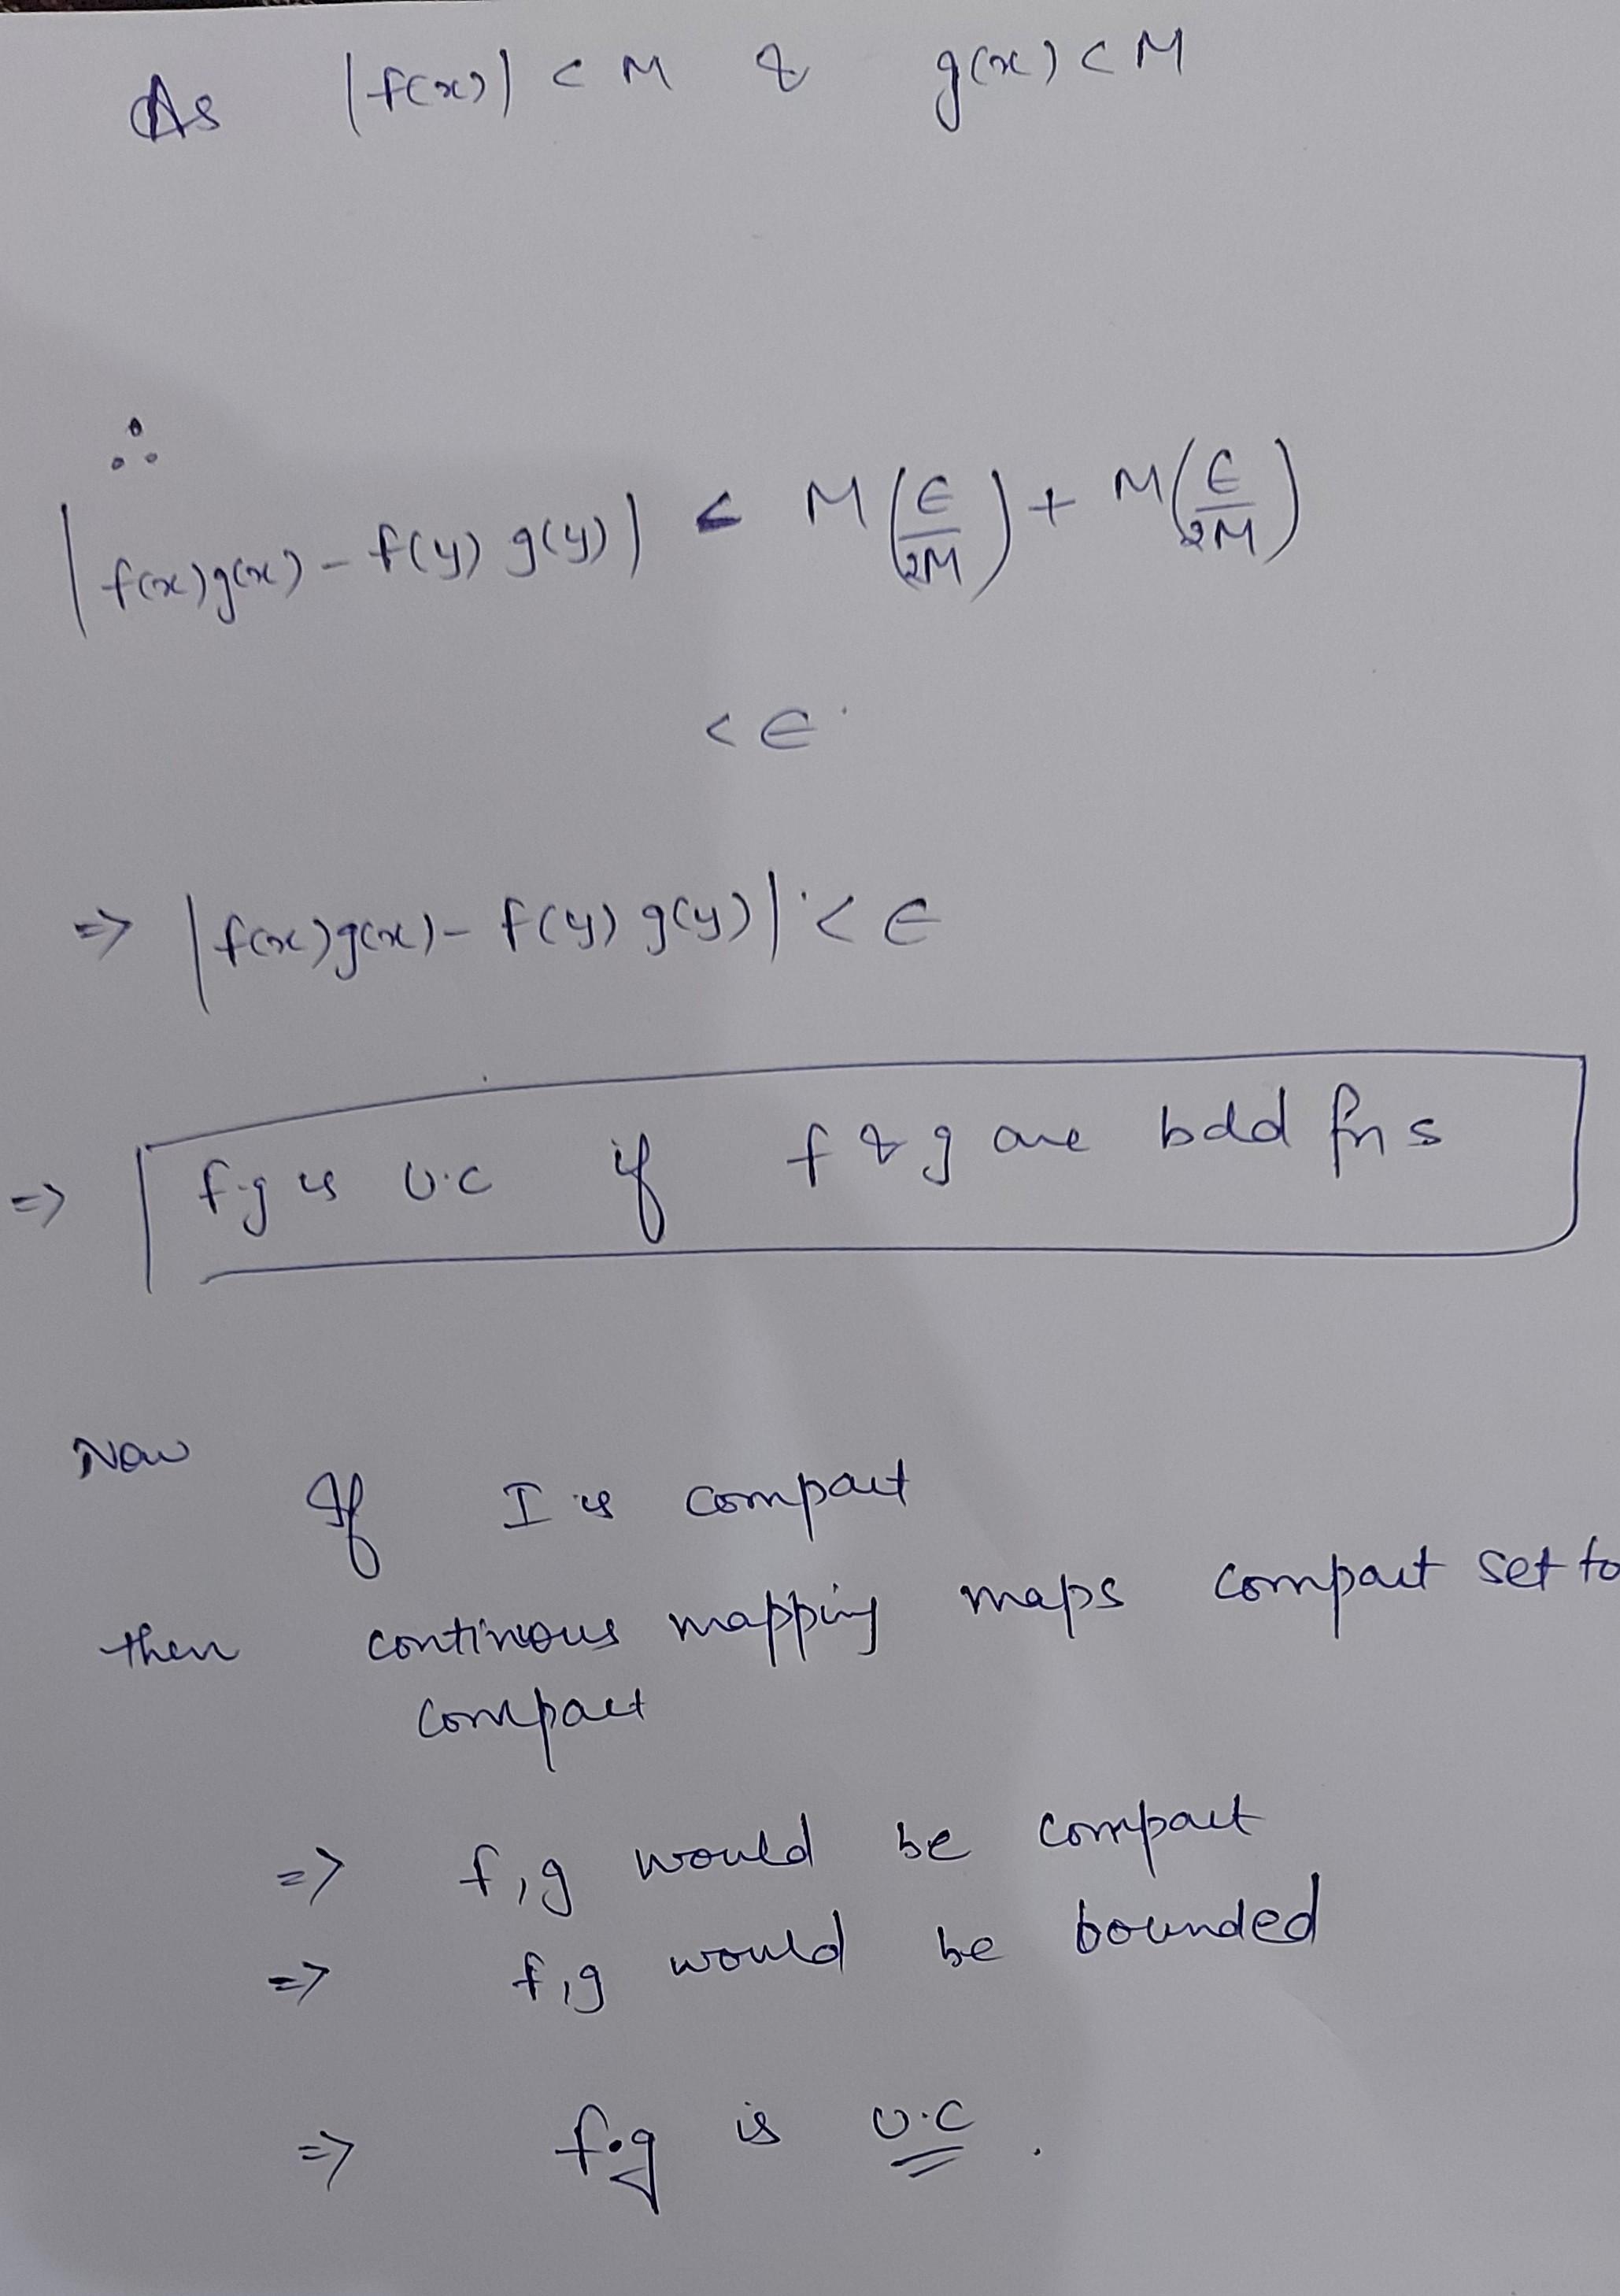 As |f(x)| < M & g(x) < M
∴
|f(x)g(x) - f(y) g(y)| < M(ε/2M) + M(ε/2M)
< ε.
=> |f(x)g(x) - f(y) g(y)| < ε
=> f.g is U.C if f & g are bdd fns
Now
If I is compact
then continous mapping maps compact set to
compact
=> f,g would be compact
=> f,g would be bounded
=> f.g is U.C.